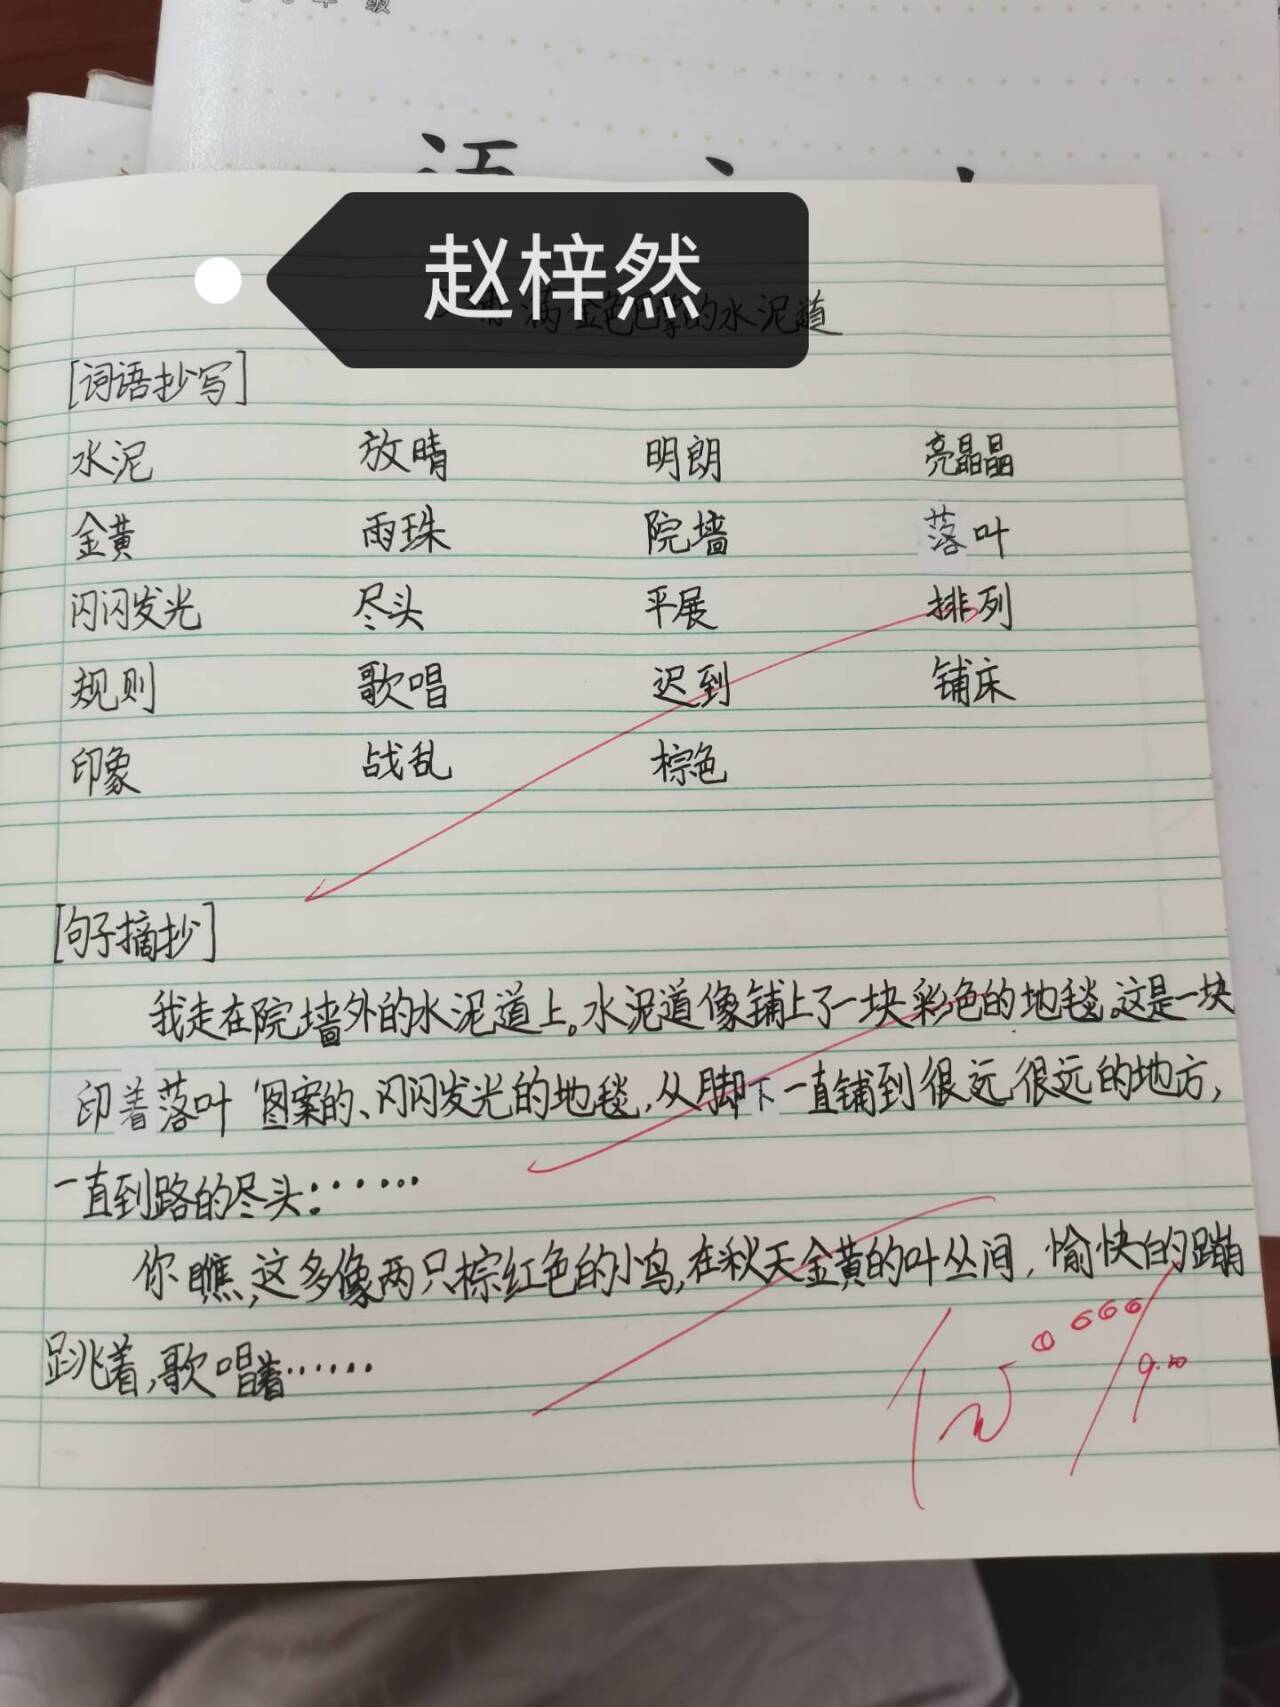 赵梓然
满金色巴掌的水泥道
[词语抄写]
水泥 放晴 明朗 亮晶晶
金黄 雨珠 院墙 落叶
闪闪发光 尽头 平展 排列
规则 歌唱 迟到 铺床
印象 战乱 棕色
[句子摘抄]
我走在院墙外的水泥道上。水泥道像铺上了一块彩色的地毯。这是一块
印着落叶图案的、闪闪发光的地毯,从脚下一直铺到很远很远的地方,
一直到路的尽头……
你瞧,这多像两只棕红色的小鸟,在秋天金黄的叶丛间,愉快的蹦
跳着,歌唱着……
9.10